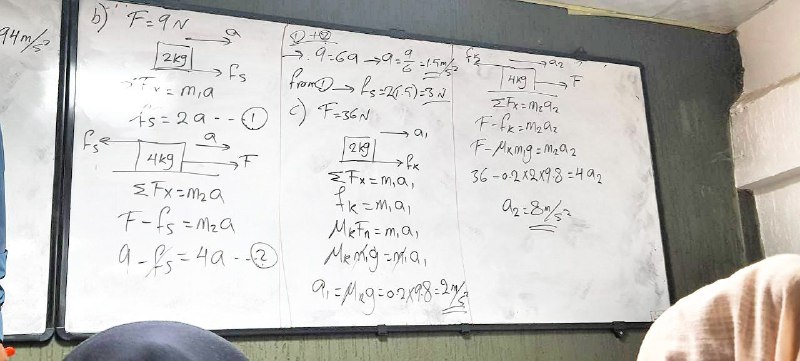 94m/s²
b) F=9N
a
2kg
fs
ΣFx=m₁a
fs=2a --①
fs
a
4kg
F
ΣFx=m₂a
F-fs=m₂a
9-fs=4a --②
①+②
→ 9=6a → a=9/6=1.5m/s²
from① → fs=2(1.5)=3N
c) F=36N
a₁
2kg
fk
ΣFx=m₁a₁
fk=m₁a₁
μkFn=m₁a₁
μkm₁g=m₁a₁
a₁=μkg=0.2×9.8=2m/s²
fk
a₂
4kg
F
ΣFx=m₂a₂
F-fk=m₂a₂
F-μkm₁g=m₂a₂
36-0.2×2×9.8=4a₂
a₂=8m/s²